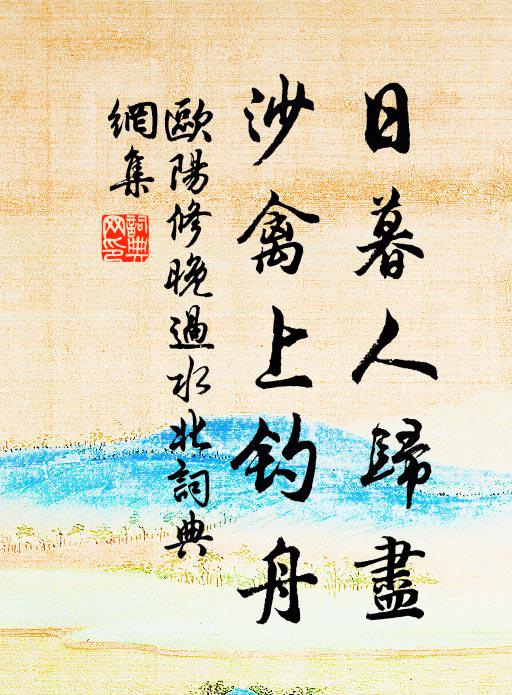 日暮人歸盡
沙禽上釣舟
歐陽修晚過水北詞典
網集
詞典网印